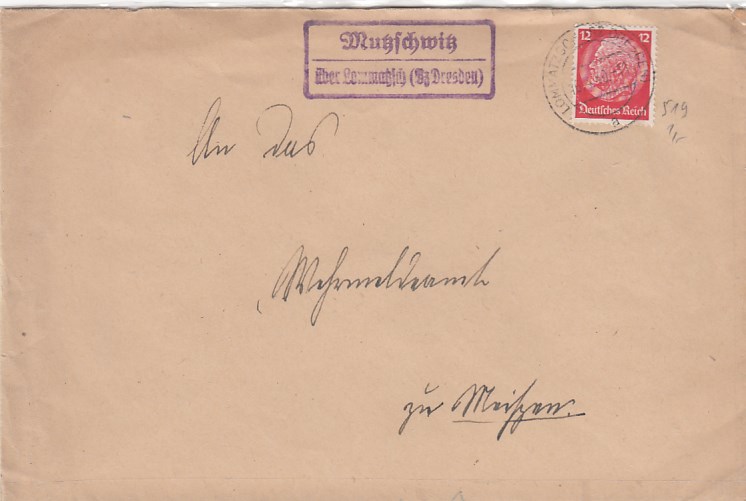 Mutzschwitz
über Lommatzsch (Bz Dresden)
12 12
Deutsches Reich
519
An das
Wehrmeldeamt
zu Meißen.